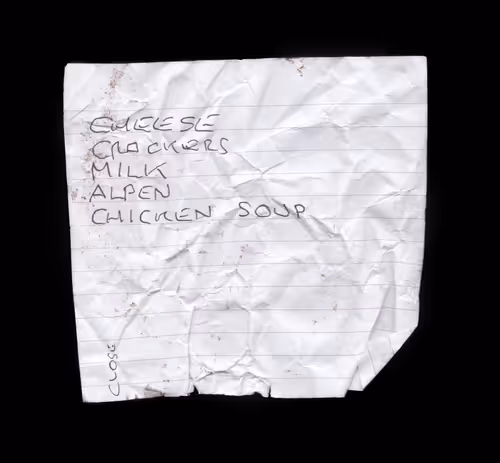 CHEESE
CRACKERS
MILK
ALPEN
CHICKEN SOUP
CLOSE